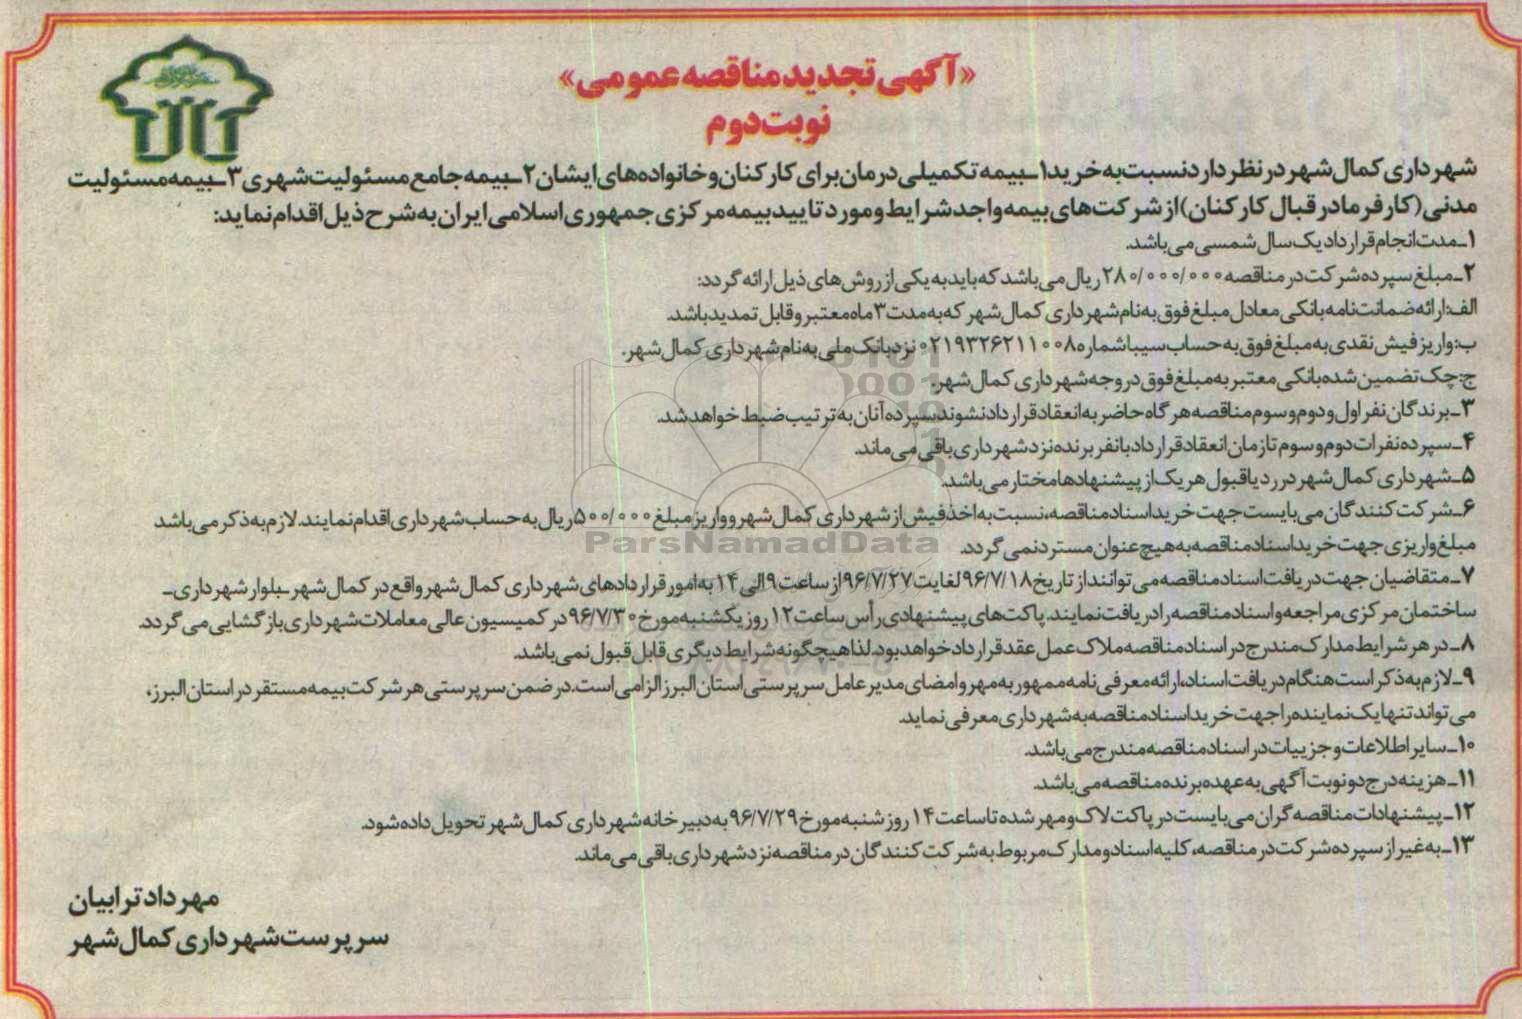 «آگهی تجدید مناقصه عمومی»
نوبت دوم
شهرداری کمال شهر در نظر دارد نسبت به خرید ۱ـ بیمه تکمیلی درمان برای کارکنان و خانواده های ایشان ۲ـ بیمه جامع مسئولیت شهری ۳ـ بیمه مسئولیت
مدنی (کارفرما در قبال کارکنان) از شرکت های بیمه واجد شرایط و مورد تایید بیمه مرکزی جمهوری اسلامی ایران به شرح ذیل اقدام نماید:
۱ـ مدت انجام قرارداد یک سال شمسی می باشد.
۲ـ مبلغ سپرده شرکت در مناقصه ۲۸۰/۰۰۰/۰۰۰ ریال می باشد که باید به یکی از روش های ذیل ارائه گردد:
الف: ارائه ضمانت نامه بانکی معادل مبلغ فوق به نام شهرداری کمال شهر که به مدت ۳ ماه معتبر و قابل تمدید باشد.
ب: واریز فیش نقدی به مبلغ فوق به حساب سیبا شماره ۰۲۱۹۳۲۶۲۱۱۰۰۸ نزد بانک ملی به نام شهرداری کمال شهر.
ج: چک تضمین شده بانکی معتبر به مبلغ فوق در وجه شهرداری کمال شهر.
۳ـ برندگان نفر اول و دوم و سوم مناقصه هر گاه حاضر به انعقاد قرارداد نشوند سپرده آنان به ترتیب ضبط خواهد شد.
۴ـ سپرده نفرات دوم و سوم تا زمان انعقاد قرارداد با نفر برنده نزد شهرداری باقی می ماند.
۵ـ شهرداری کمال شهر در رد یا قبول هر یک از پیشنهادها مختار می باشد.
۶ـ شرکت کنندگان می بایست جهت خرید اسناد مناقصه، نسبت به اخذ فیش از شهرداری کمال شهر و واریز مبلغ ۵۰۰/۰۰۰ ریال به حساب شهرداری اقدام نمایند. لازم به ذکر می باشد
مبلغ واریزی جهت خرید اسناد مناقصه به هیچ عنوان مسترد نمی گردد.
۷ـ متقاضیان جهت دریافت اسناد مناقصه می توانند از تاریخ ۹۶/۷/۱۸ لغایت ۹۶/۷/۲۷ از ساعت ۹ الی ۱۴ به امور قراردادهای شهرداری کمال شهر واقع در کمال شهر ـ بلوار شهرداری ـ
ساختمان مرکزی مراجعه و اسناد مناقصه را دریافت نمایند. پاکت های پیشنهادی رأس ساعت ۱۲ روز یکشنبه مورخ ۹۶/۷/۳۰ در کمیسیون عالی معاملات شهرداری بازگشایی می گردد.
۸ـ در هر شرایط مدارک مندرج در اسناد مناقصه ملاک عمل عقد قرارداد خواهد بود. لذا هیچگونه شرایط دیگری قابل قبول نمی باشد.
۹ـ لازم به ذکر است هنگام دریافت اسناد، ارائه معرفی نامه ممهور به مهر و امضای مدیرعامل سرپرستی استان البرز الزامی است. در ضمن سرپرستی هر شرکت بیمه مستقر در استان البرز،
می تواند تنها یک نماینده را جهت خرید اسناد مناقصه به شهرداری معرفی نماید.
۱۰ـ سایر اطلاعات و جزییات در اسناد مناقصه مندرج می باشد.
۱۱ـ هزینه درج دو نوبت آگهی به عهده برنده مناقصه می باشد.
۱۲ـ پیشنهادات مناقصه گران می بایست در پاکت لاک و مهر شده تا ساعت ۱۴ روز شنبه مورخ ۹۶/۷/۲۹ به دبیرخانه شهرداری کمال شهر تحویل داده شود.
۱۳ـ به غیر از سپرده شرکت در مناقصه، کلیه اسناد و مدارک مربوط به شرکت کنندگان در مناقصه نزد شهرداری باقی می ماند.
مهرداد ترابیان
سرپرست شهرداری کمال شهر
ParsNamadData